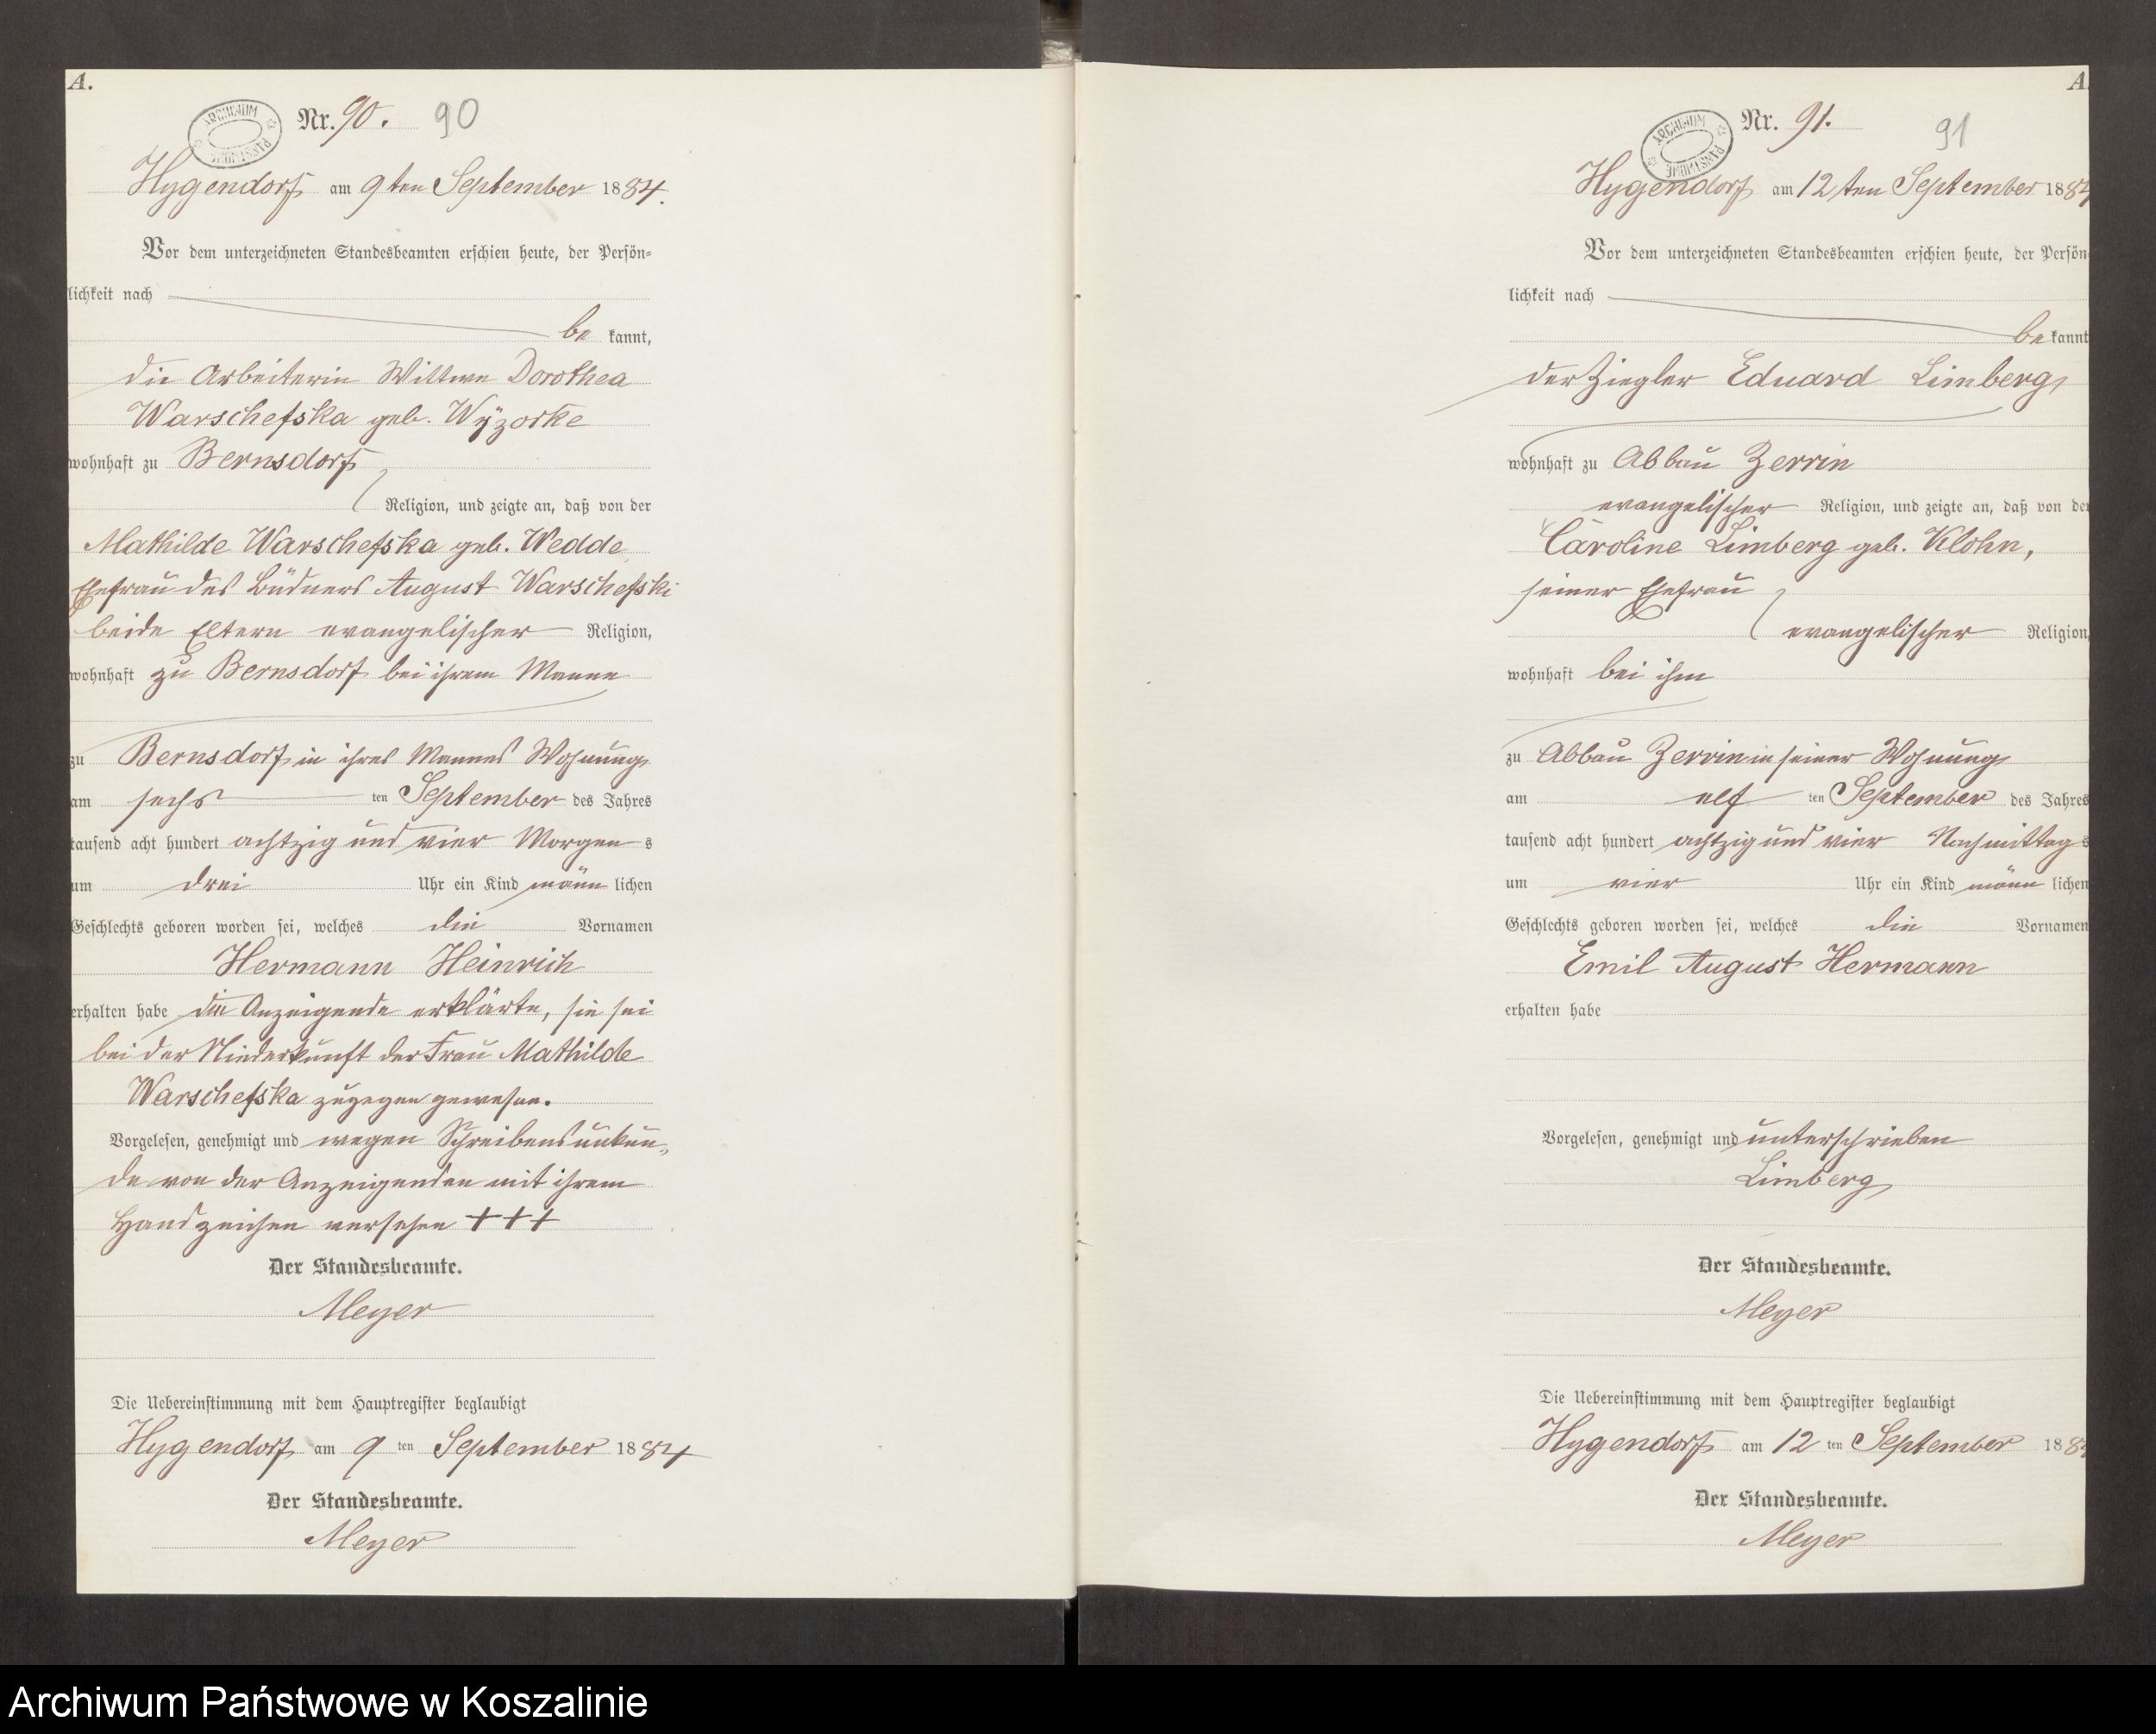 A.
ARCHIWUM PAŃSTWOWE
Nr. 90. 90
Hygendorf am 9ten September 1884.
Vor dem unterzeichneten Standesbeamten erschien heute, der Persön-
lichkeit nach
be kannt,
die Arbeiterin Wittwe Dorothea
Warschefska geb. Wÿzorke
wohnhaft zu Bernsdorf
Religion, und zeigte an, daß von der
Mathilde Warschefska geb. Wedde
Ehefrau des Büdners August Warschefski
beide Eltern evangelischer Religion,
wohnhaft zu Bernsdorf bei ihrem Manne
zu Bernsdorf in ihres Mannes Wohnung
am sechs ten September des Jahres
tausend acht hundert achtzig und vier Morgen s
um drei Uhr ein Kind männ lichen
Geschlechts geboren worden sei, welches die Vornamen
Hermann Heinrich
erhalten habe die Anzeigende erklärte, sie sei
bei der Niederkunft der Frau Mathilde
Warschefska zugegen gewesen.
Vorgelesen, genehmigt und wegen Schreibensunkun-
de von der Anzeigenden mit ihrem
Handzeichen versehen +++
Der Standesbeamte.
Meyer
Die Uebereinstimmung mit dem Hauptregister beglaubigt
Hygendorf am 9 ten September 1884
Der Standesbeamte.
Meyer
A.
ARCHIWUM PAŃSTWOWE
Nr. 91.
91
Hygendorf am 12ten September 1884
Vor dem unterzeichneten Standesbeamten erschien heute, der Persön-
lichkeit nach
be kannt
der Ziegler Eduard Limberg
wohnhaft zu Abbau Zerrin
evangelischer Religion, und zeigte an, daß von der
Caroline Limberg geb. Klohn,
seiner Ehefrau
evangelischer Religion,
wohnhaft bei ihm
zu Abbau Zerrin in seiner Wohnung
am elf ten September des Jahres
tausend acht hundert achtzig und vier Nachmittag s
um vier Uhr ein Kind männ lichen
Geschlechts geboren worden sei, welches die Vornamen
Emil August Hermann
erhalten habe
Vorgelesen, genehmigt und unterschrieben
Limberg
Der Standesbeamte.
Meyer
Die Uebereinstimmung mit dem Hauptregister beglaubigt
Hygendorf am 12 ten September 188
Der Standesbeamte.
Meyer
Archiwum Państwowe w Koszalinie